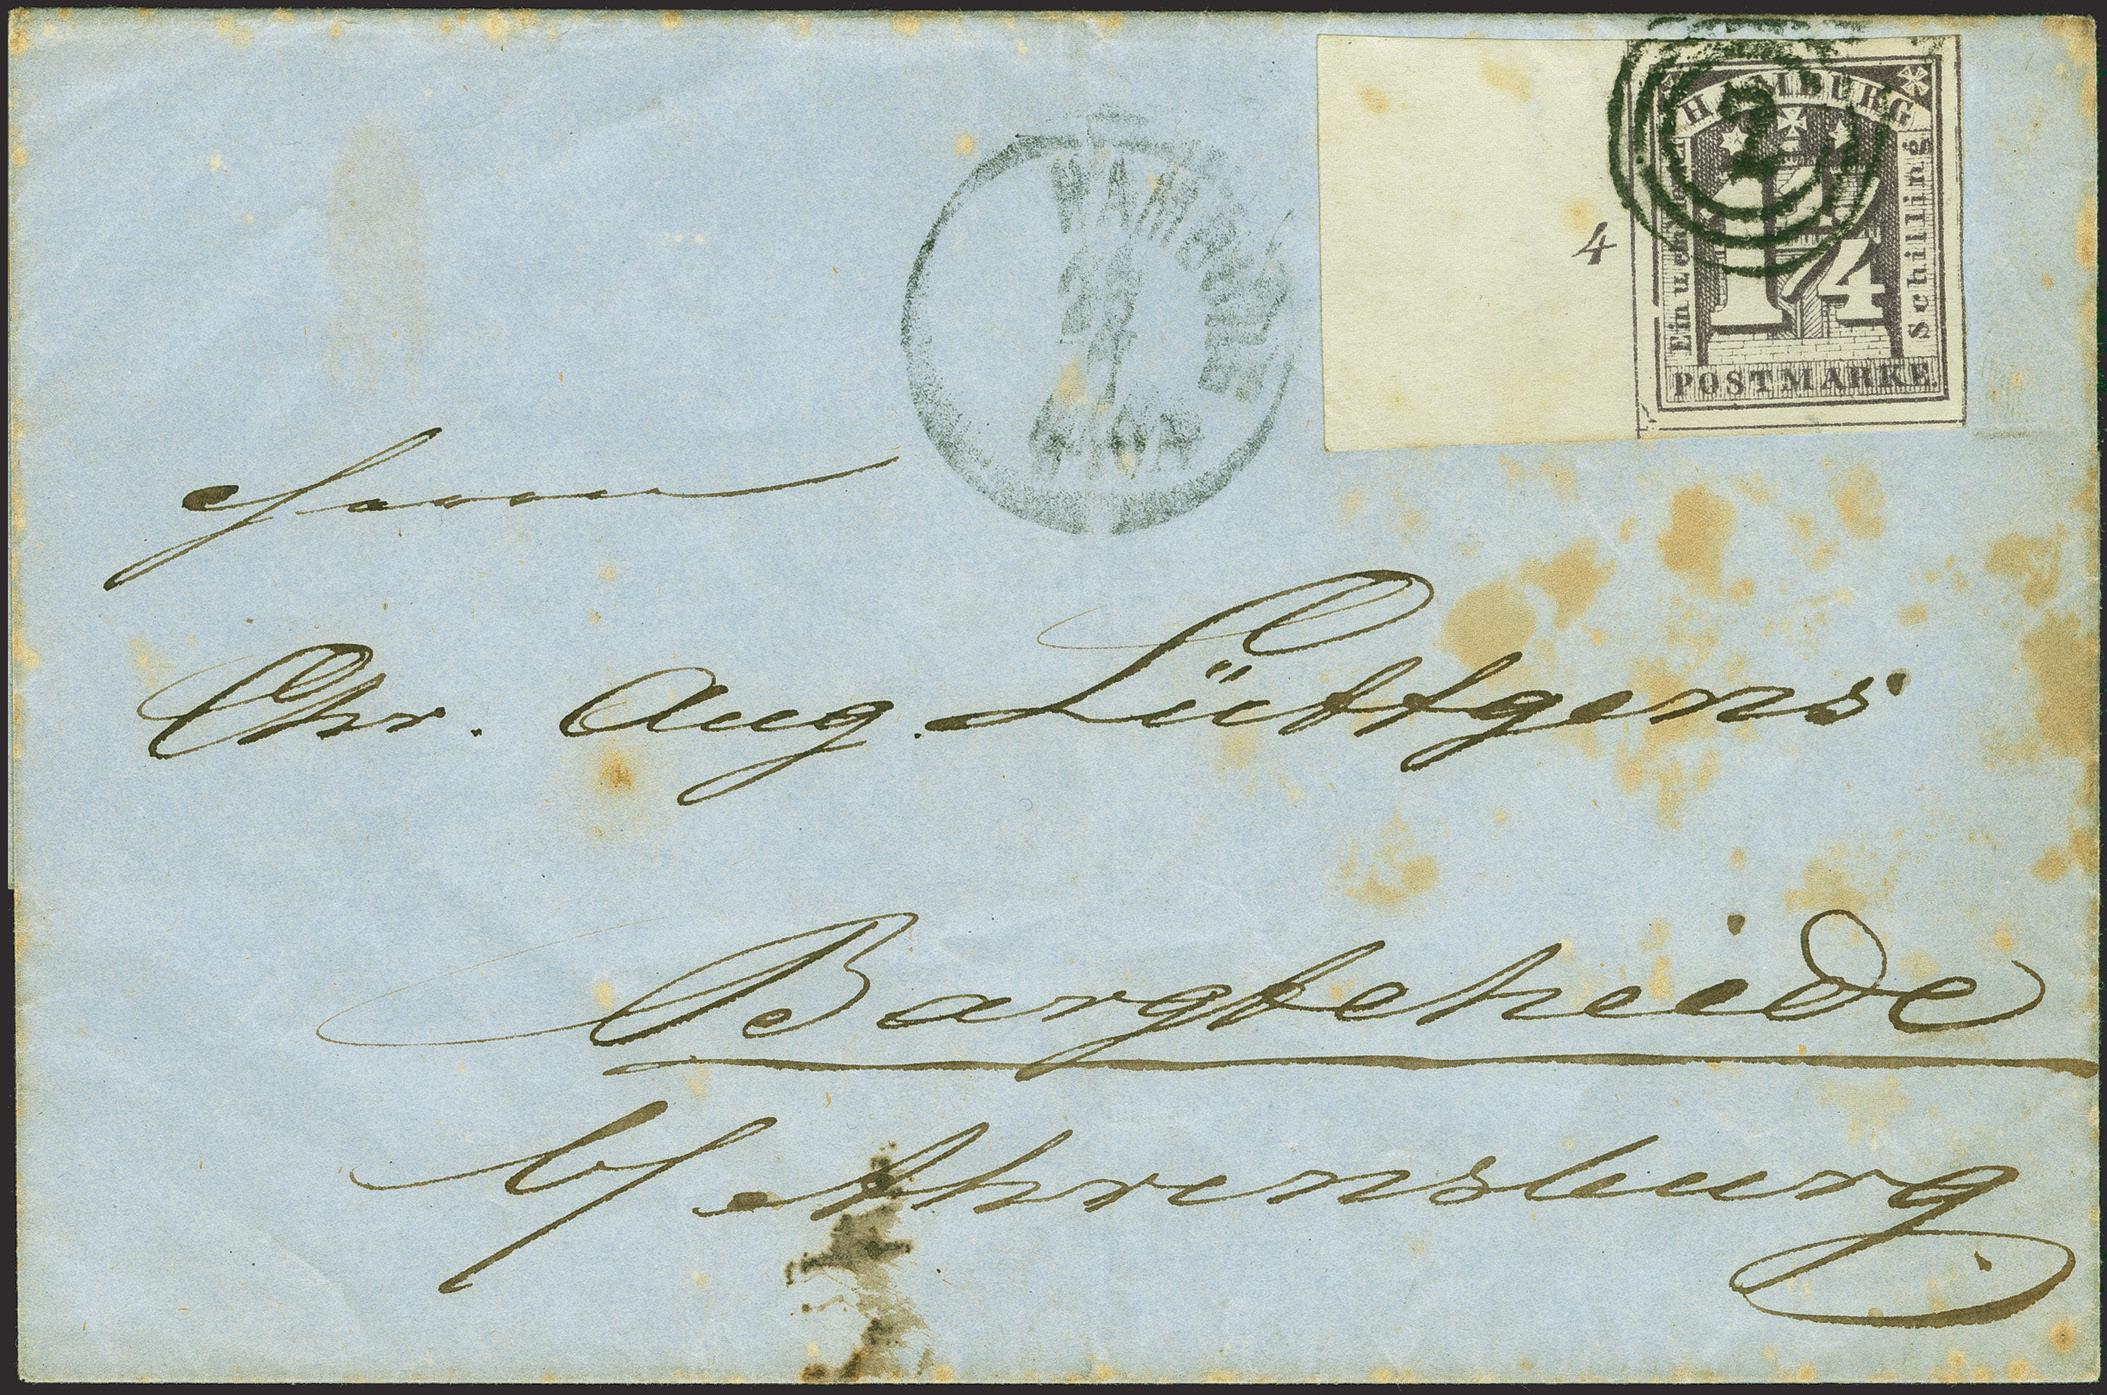 HAMBURG
Ein u ein Schilling
1 1/4
POSTMARKE.
4
2
HAMBURG
Herrn
Chr. Aug. Lüttgens
Bargteheide
b/ Ahrensburg